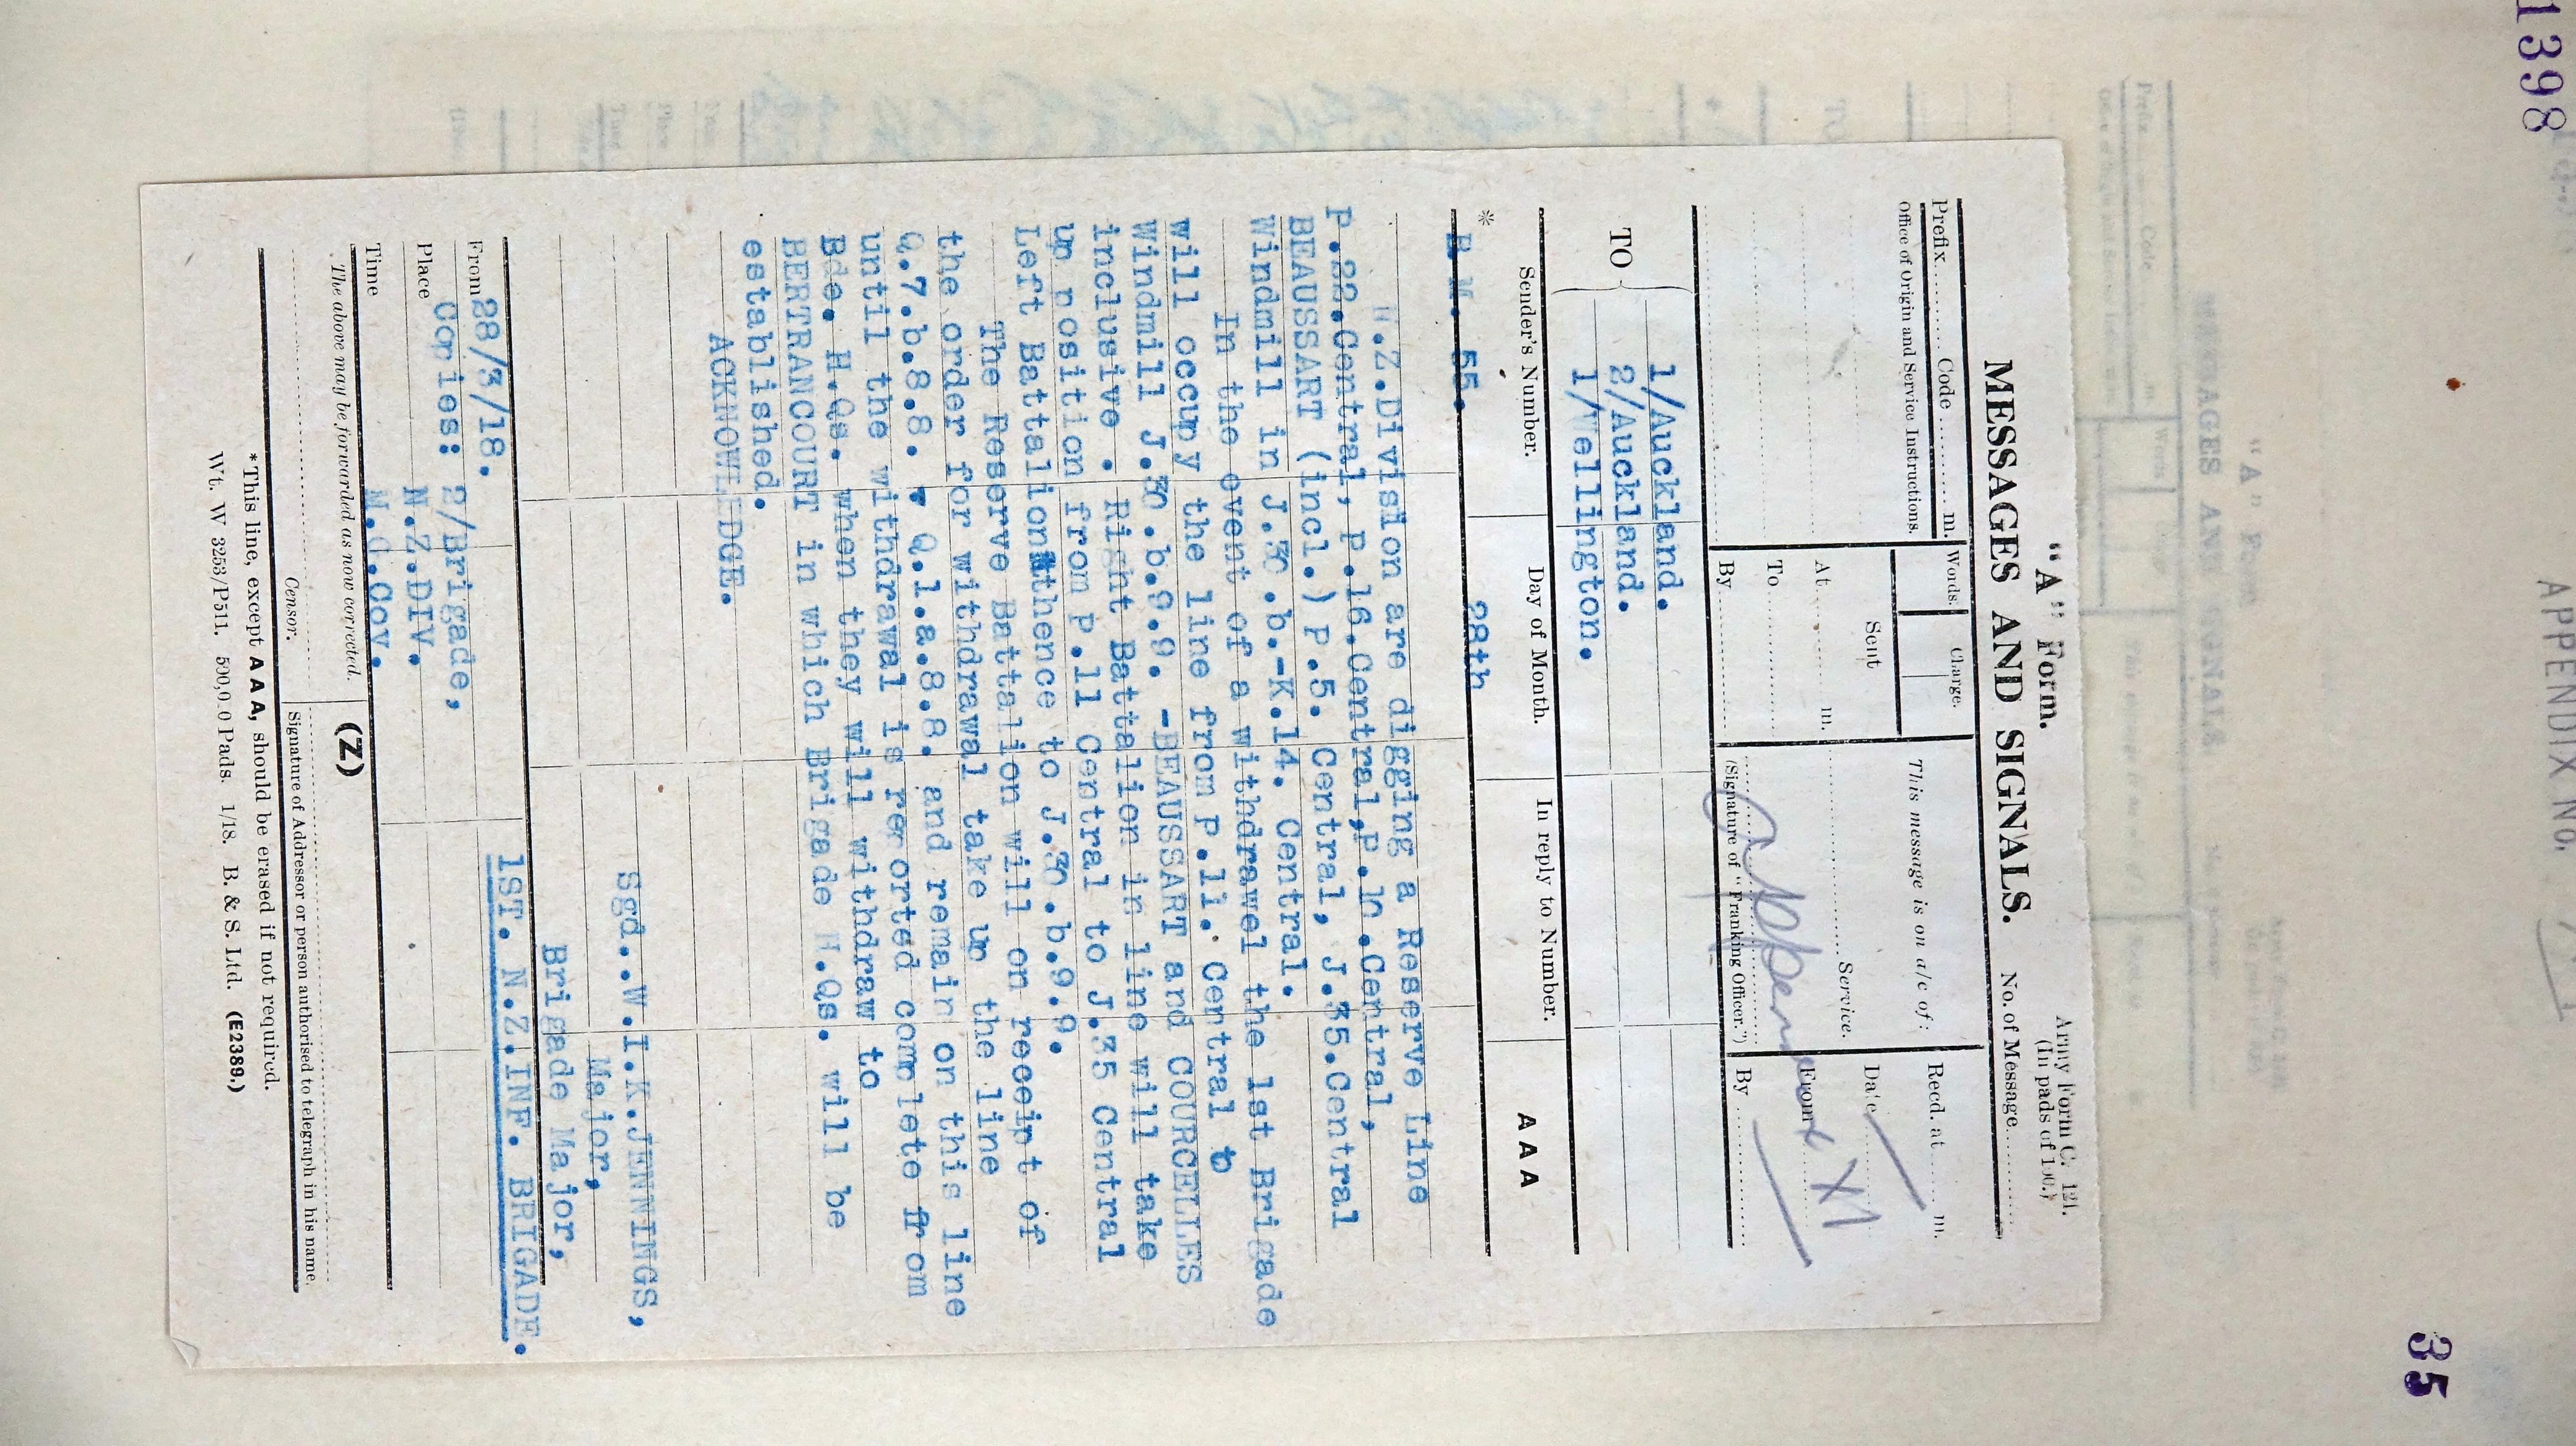 1398
APPENDIX NO.
35
"A" Form.
Army Form C. 121.
(In pads of 100.)
MESSAGES AND SIGNALS.
No. of Message............
Prefix......... Code ......... m.
Words.
Charge.
This message is on a/c of:
Recd. at ......... m.
Office of Origin and Service Instructions.
Sent
Date
At............ m.
............Service.
To............
From
By............
(Signature of "Franking Officer.")
By............
Appendix XI
TO
1/Auckland.
2/Auckland.
1/Wellington.
Sender's Number.
Day of Month.
In reply to Number.
A A A
* B.M. 55.
28th
N.Z.Division are digging a Reserve Line
P.22.Central, P.16.Central,P.10.Central,
BEAUSSART (incl.) P.5. Central, J.35.Central
Windmill in J.30.b.-K.14. Central.
In the event of a withdrawel the 1st Brigade
will occupy the line from P.11. Central to
Windmill J.30.b.9.9. -BEAUSSART and COURCELLES
inclusive. Right Battalion in line will take
up position from P.11 Central to J.35 Central
Left Battalion thence to J.30.b.9.9.
The Reserve Battalion will on receipt of
the order for withdrawal take up the line
Q.7.b.8.8. Q.1.a.8.8. and remain on this line
until the withdrawal is reported complete from
Bde. H.Qs. when they will withdraw to
BERTRANCOURT in which Brigade H.Qs. will be
established.
ACKNOWLEDGE.
Sgd..W.I.K.JENNINGS,
Major,
Brigade Major,
1ST. N.Z.INF. BRIGADE.
From 28/3/18.
Place Copies: 2/Brigade,
N.Z.DIV.
Time M.G.Coy.
The above may be forwarded as now corrected.
(Z)
Censor.
Signature of Addressor or person authorised to telegraph in his name.
*This line, except A A A, should be erased if not required.
Wt. W 3253/P511. 500,000 Pads. 1/18. B. & S. Ltd. (E2389.)